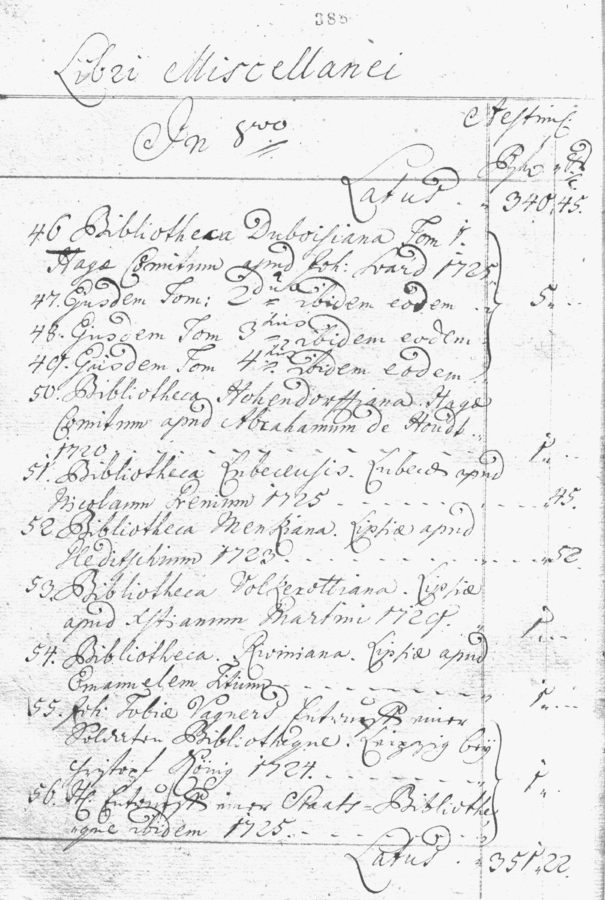 385
Libri Miscellanei
In 8vo
Aestim:
Latus . " 340.45.
46 Bibliotheca Duboisiana Tom 1.
Hagæ Comitum apud Joh: Svard 1725
47. Ejusdem Tom: 2dus ibidem eodem . . 5. . .
48. Ejusdem Tom 3tius ibidem eodem
49. Ejusdem Tom 4tus ibidem eodem
50. Bibliotheca Hohendorffiana. Hagæ
Comitum apud Abrahamum de Hondt.
1720 1. . .
51. Bibliotheca Lubecensis. Lubecæ apud
Nicolaum 1725 45.
52. Bibliotheca Menkiana. Lipsiæ apud
Gleditschium 1723 52
53. Bibliotheca Volkerottiana. Lipsiæ
apud Xstianum Martini 1729. 1. . .
54. Bibliotheca. Riviniana. Lipsiæ apud
Emanuelem Titium 1. . .
55. Joh: Tobiæ Vagners Entwurff einer
Soldaten Bibliotheque. Leipzig bey
Christoph König 1724. 1. .
56. It: Entwurff einer Staats=Bibliothe
que ibidem 1725.
Latus . " 351.22.